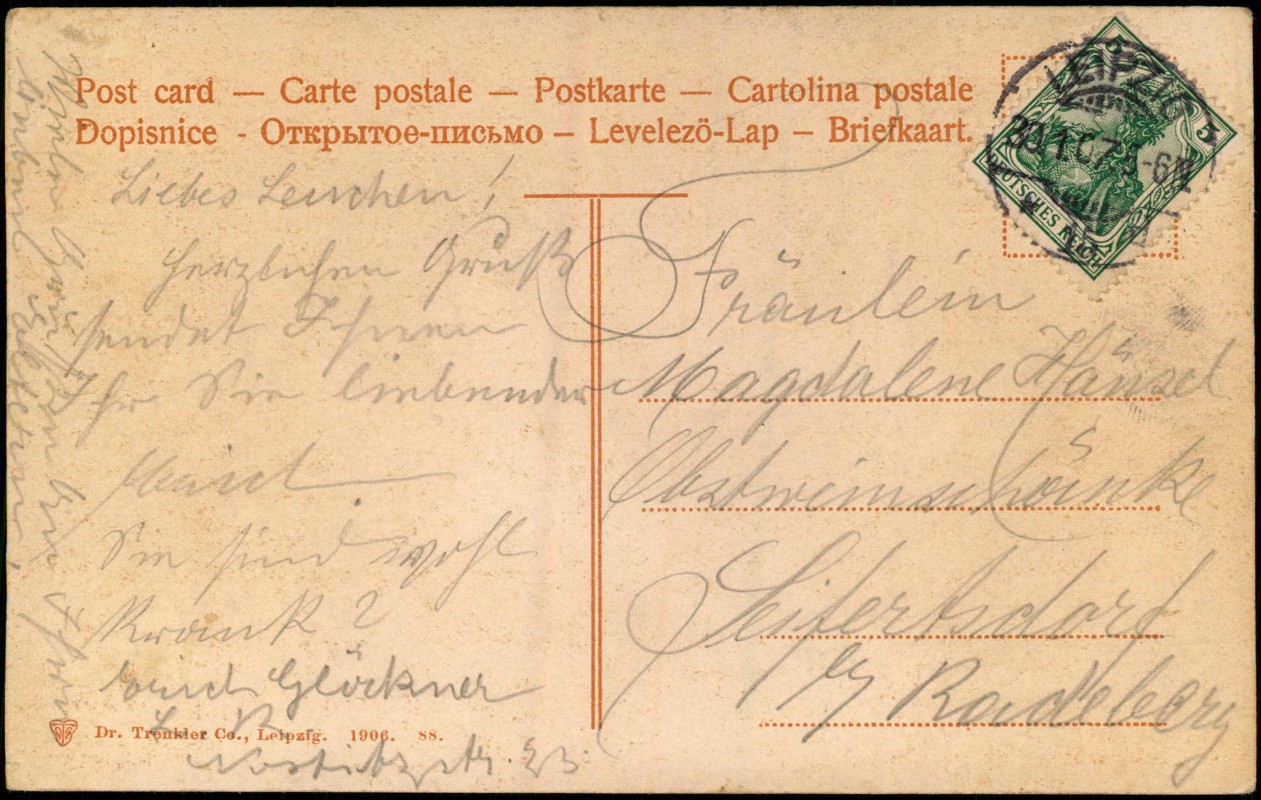 Post card — Carte postale — Postkarte — Cartolina postale
Dopisnice - Открытое-письмо — Levelezö-Lap — Briefkaart.
5
5
DEUTSCHES REICH
LEIPZIG
30.1.07.5-6N
Liebes Lenchen!
Herzlichen Gruß
sendet Ihnen
Ihr Sie liebender
Erich
Sie sind wohl
krank?
Erich Glöckner
L. R.
Nostitzstr. 23
Fräulein
Magdalene Hänsel
Obstweinschänke
Seifertsdorf
b/ Radeberg
Dr. Trenkler Co., Leipzig. 1906. 88.